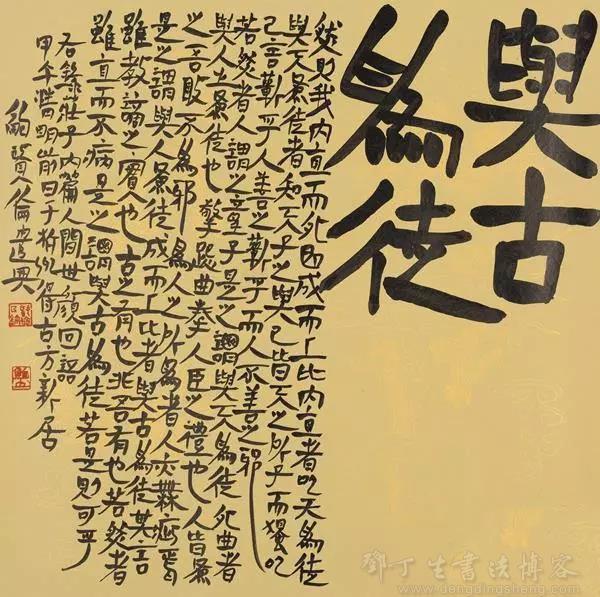 與古
為徒
然則我內直而外曲成而上比內直者以天為徒
與天為徒者知天子之與己皆天之所子而獨以
己言蘄乎人善之蘄乎而人不善之邪
若然者人謂之童子是之謂與天為徒外曲者
與人之為徒也擎跽曲拳人臣之禮也人皆為
之吾敢不為邪為人之所為者人亦無疵焉
是之謂與人為徒成而上比者與古為徒其言
雖教謫之實也古之有也非吾有也若然者
雖直而不病是之謂與古為徒若是則可乎
右錄莊子內篇人間世顏回語
甲午清明前日于杭州得古方新居
鮑賢倫遣興
鄧丁生書法博客
www.dengdingsheng.com